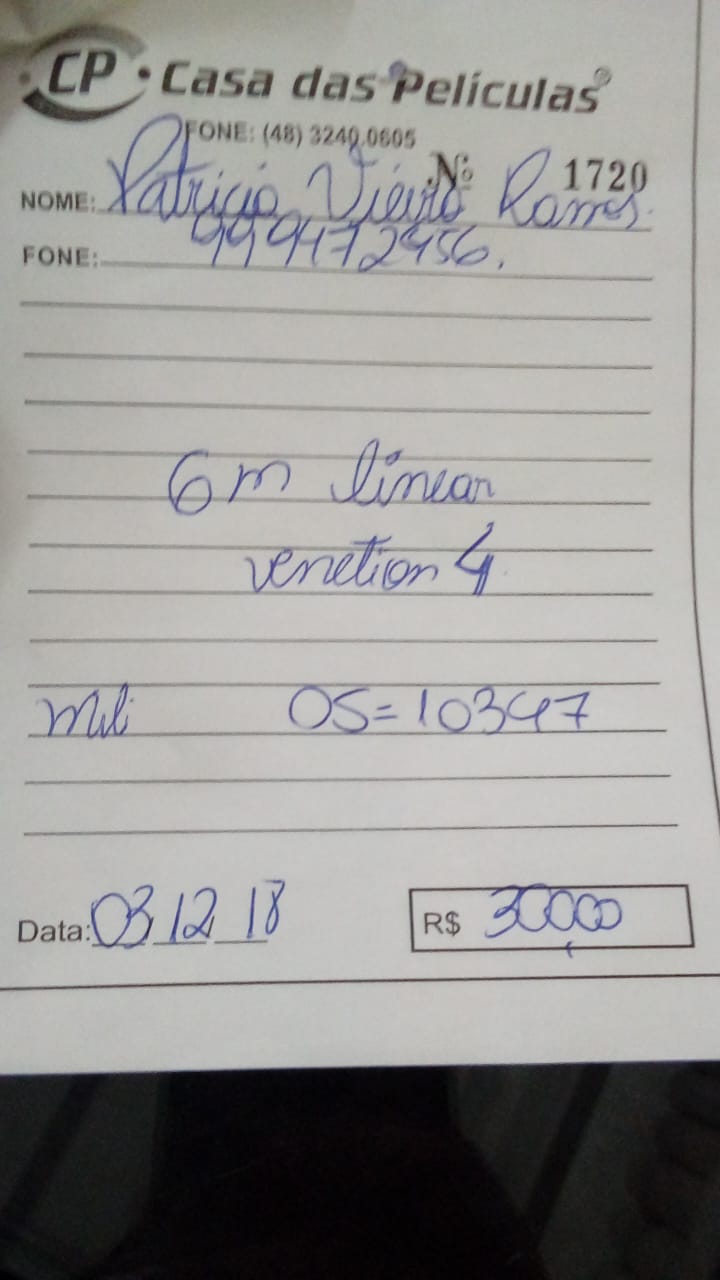 CP • Casa das Películas
FONE: (48) 3240.0605
Nº 1720
NOME: Patricia Vieira Ramos.
FONE: 999472956.
6m linear
venetion 4
Mili OS=10347
Data: 03 12 18 R$ 300,00